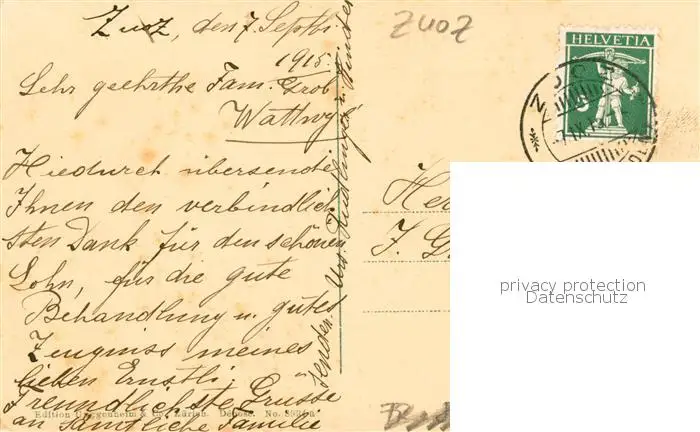 Zuoz, den 7. Septbr
1915.
Sehr geehrthe Fam. Grob
Wattwyl
Hiedurch übersende
Ihnen den verbindlich
sten Dank für den schönen
Lohn, für die gute
Behandlung u. gutes
Zeugniss meines
lieben Ernstli
Freundlichste Grüsse
an Sämtliche Familie
Sender: Urs.
Edition Guggenheim & Co. Zürich. Déposé. No.
ZUOZ
HELVETIA
ZUOZ
He
J. G
privacy protection
Datenschutz